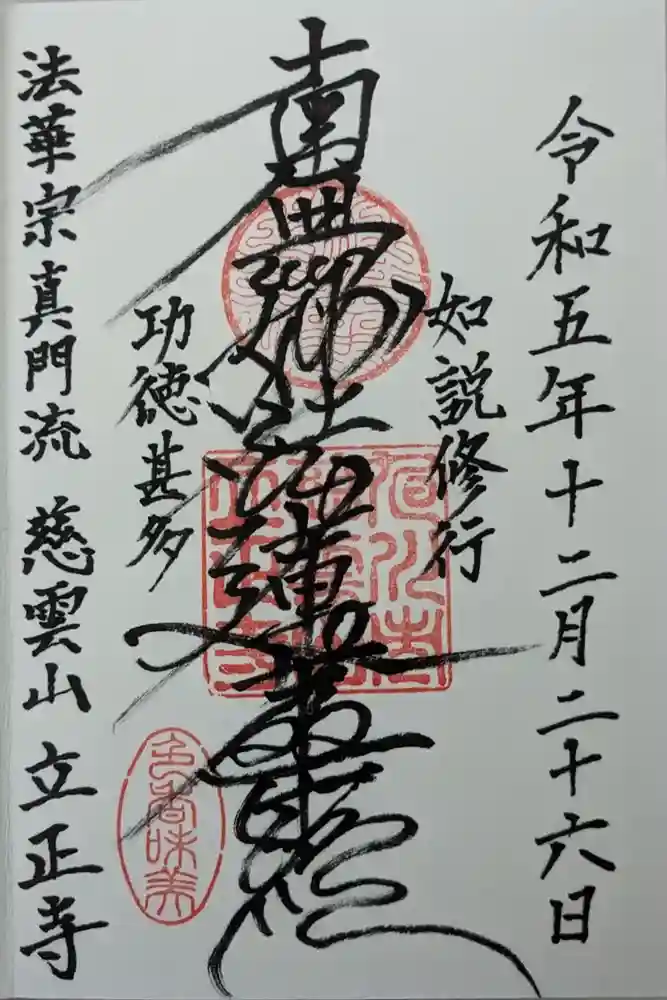 令和五年十二月二十六日
如説修行
南無妙法蓮華経
功徳甚多
法華宗真門流 慈雲山 立正寺
色香味美